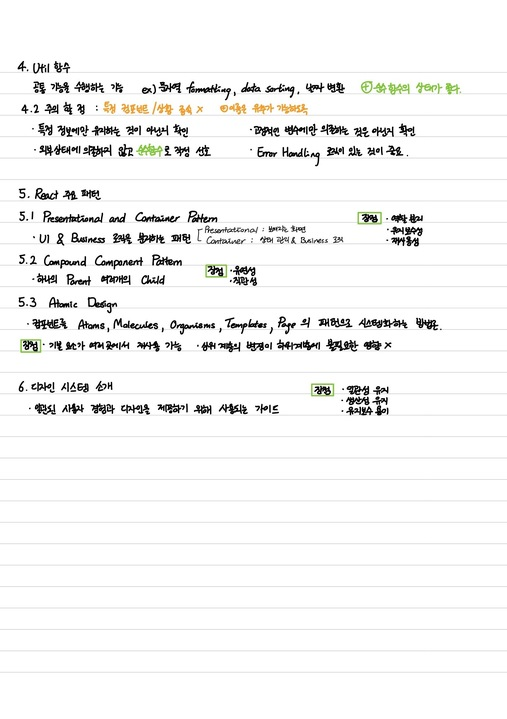 4. Util 함수
공통 기능을 수행하는 기능 ex) 문자열 formatting, data sorting, 날짜 변환 ⊕ 순수함수의 상태가 좋다.
4.2 주의 할 점 : 특정 컴포넌트/상황 종속 X 이름은 유추가 가능하도록
· 특정 정보에만 유지하는 것이 아닌지 확인 · 전역적인 변수에만 의존하는 것은 아닌지 확인
· 외부상태에 의존하지 않고 순수함수로 작성 선호 · Error Handling 로직이 있는 것이 중요.
5. React 주요 패턴
5.1 Presentational and Container Pattern 장점 · 역할 분리
· UI & Business 로직을 분리하는 패턴 Presentational : 보여지는 화면 · 유지보수성
Container : 상태 관리 & Business 로직 · 재사용성
5.2 Compound Component Pattern 장점 · 유연성
· 하나의 Parent 여러개의 Child · 직관성
5.3 Atomic Design
· 컴포넌트를 Atoms, Molecules, Organisms, Templates, Page 의 패턴으로 시스템화하는 방법론.
장점 · 기본 요소가 여러곳에서 재사용 가능 · 상위 계층의 변경이 하위계층에 불필요한 영향 X
6. 디자인 시스템 소개 장점 · 일관성 유지
· 생산성 유지
· 일관된 사용자 경험과 디자인을 제공하기 위해 사용되는 가이드 · 유지보수 용이